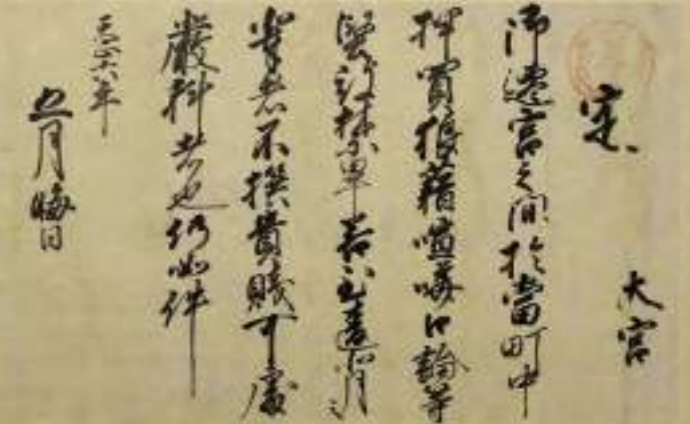 定　大宮
御遷宮之間於當町中
押買狼藉喧嘩口論等
堅被禁畢若違背
輩者不撰貴賤可處
嚴科者也仍如件
天正六年
五月晦日